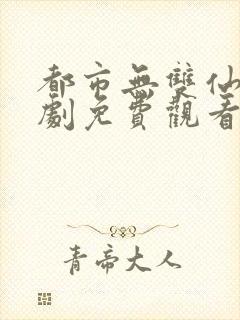 都市無雙仙
劇免費觀看
青帝大人